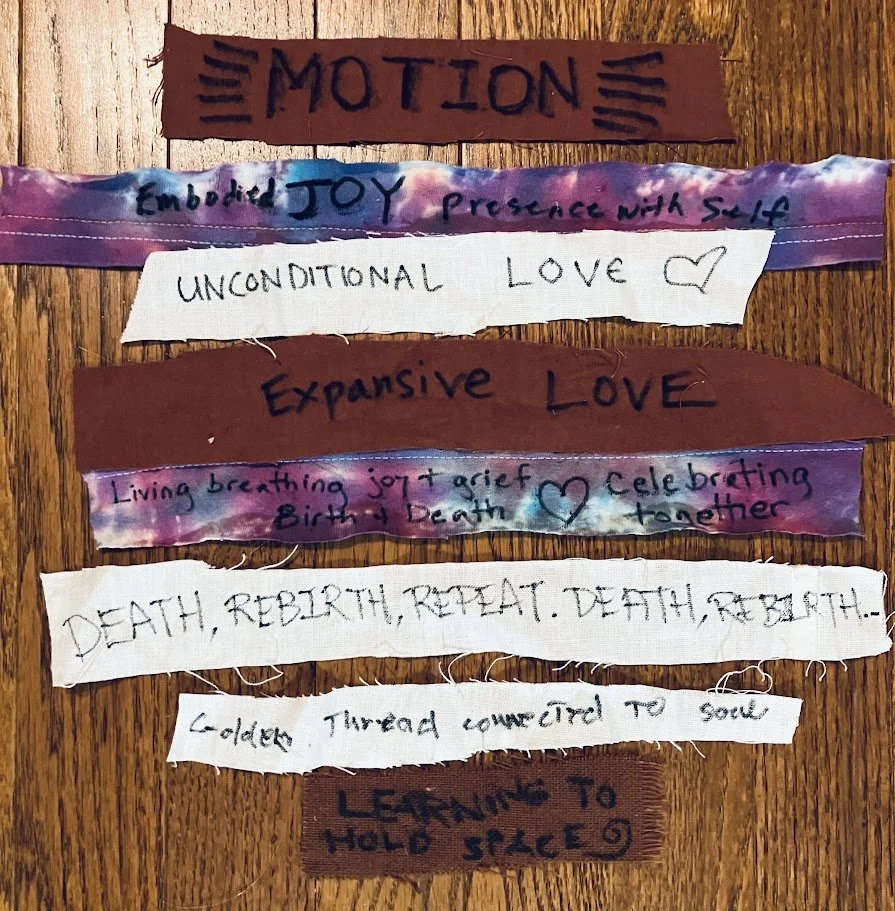 MOTION
Embodied JOY presence with self
UNCONDITIONAL LOVE
Expansive LOVE
Living breathing joy + grief
Birth + Death
Celebrating
together
DEATH, REBIRTH, REPEAT. DEATH, REBIRTH...
Golden Thread connected TO soul
LEARNING TO
HOLD SPACE